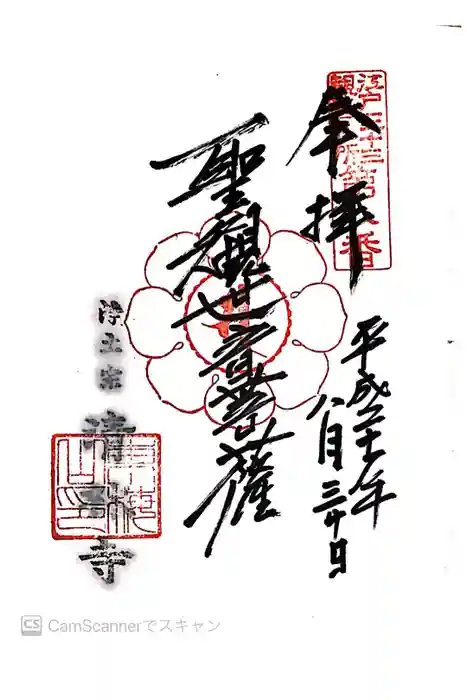 奉拝
平成二十一年
八月三十日
聖観世音菩薩
浄土宗
清
寺
CS CamScannerでスキャン